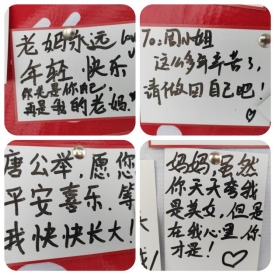 老妈永远
年轻,快乐
你先是你自己,
再是我的老妈.
To:周小姐
这么多年辛苦了,
请做回自己吧!
唐公举,愿您
平安喜乐.等
我快快长大!
妈妈,虽然
你天天夸我
是美女,但是
在我心里,你
才是!